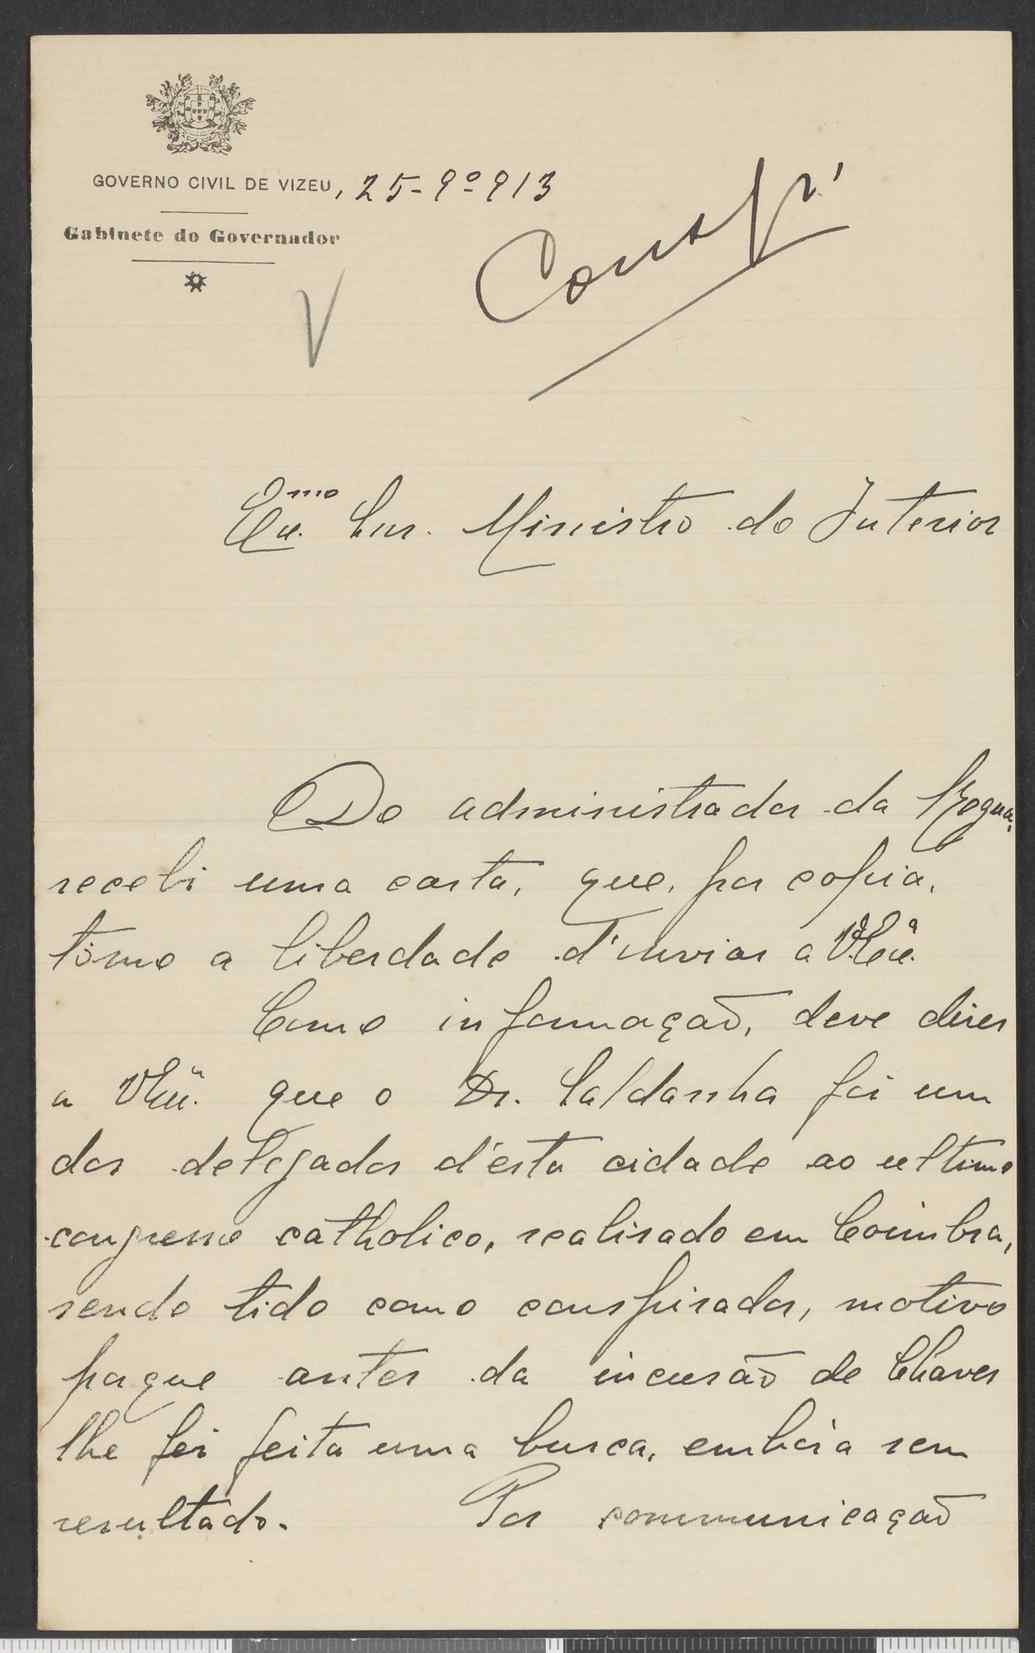 GOVERNO CIVIL DE VIZEU, 25-9º-913
Gabinete do Governador
Exmo Snr. Ministro do Interior
Do administrador da Regua,
recebi uma carta, que, por copia,
tomo a liberdade d'inviar a V. Exª.
Como informação, deve dizer
a V. Exª. que o Dr. Saldanha foi um
dos delegados d'esta cidade ao ultimo
congresso catholico, realisado em Coimbra,
sendo tido como conspirador, motivo
porque antes da incursão de Chaves
lhe foi feita uma busca, embora sem
resultado. Por communicação